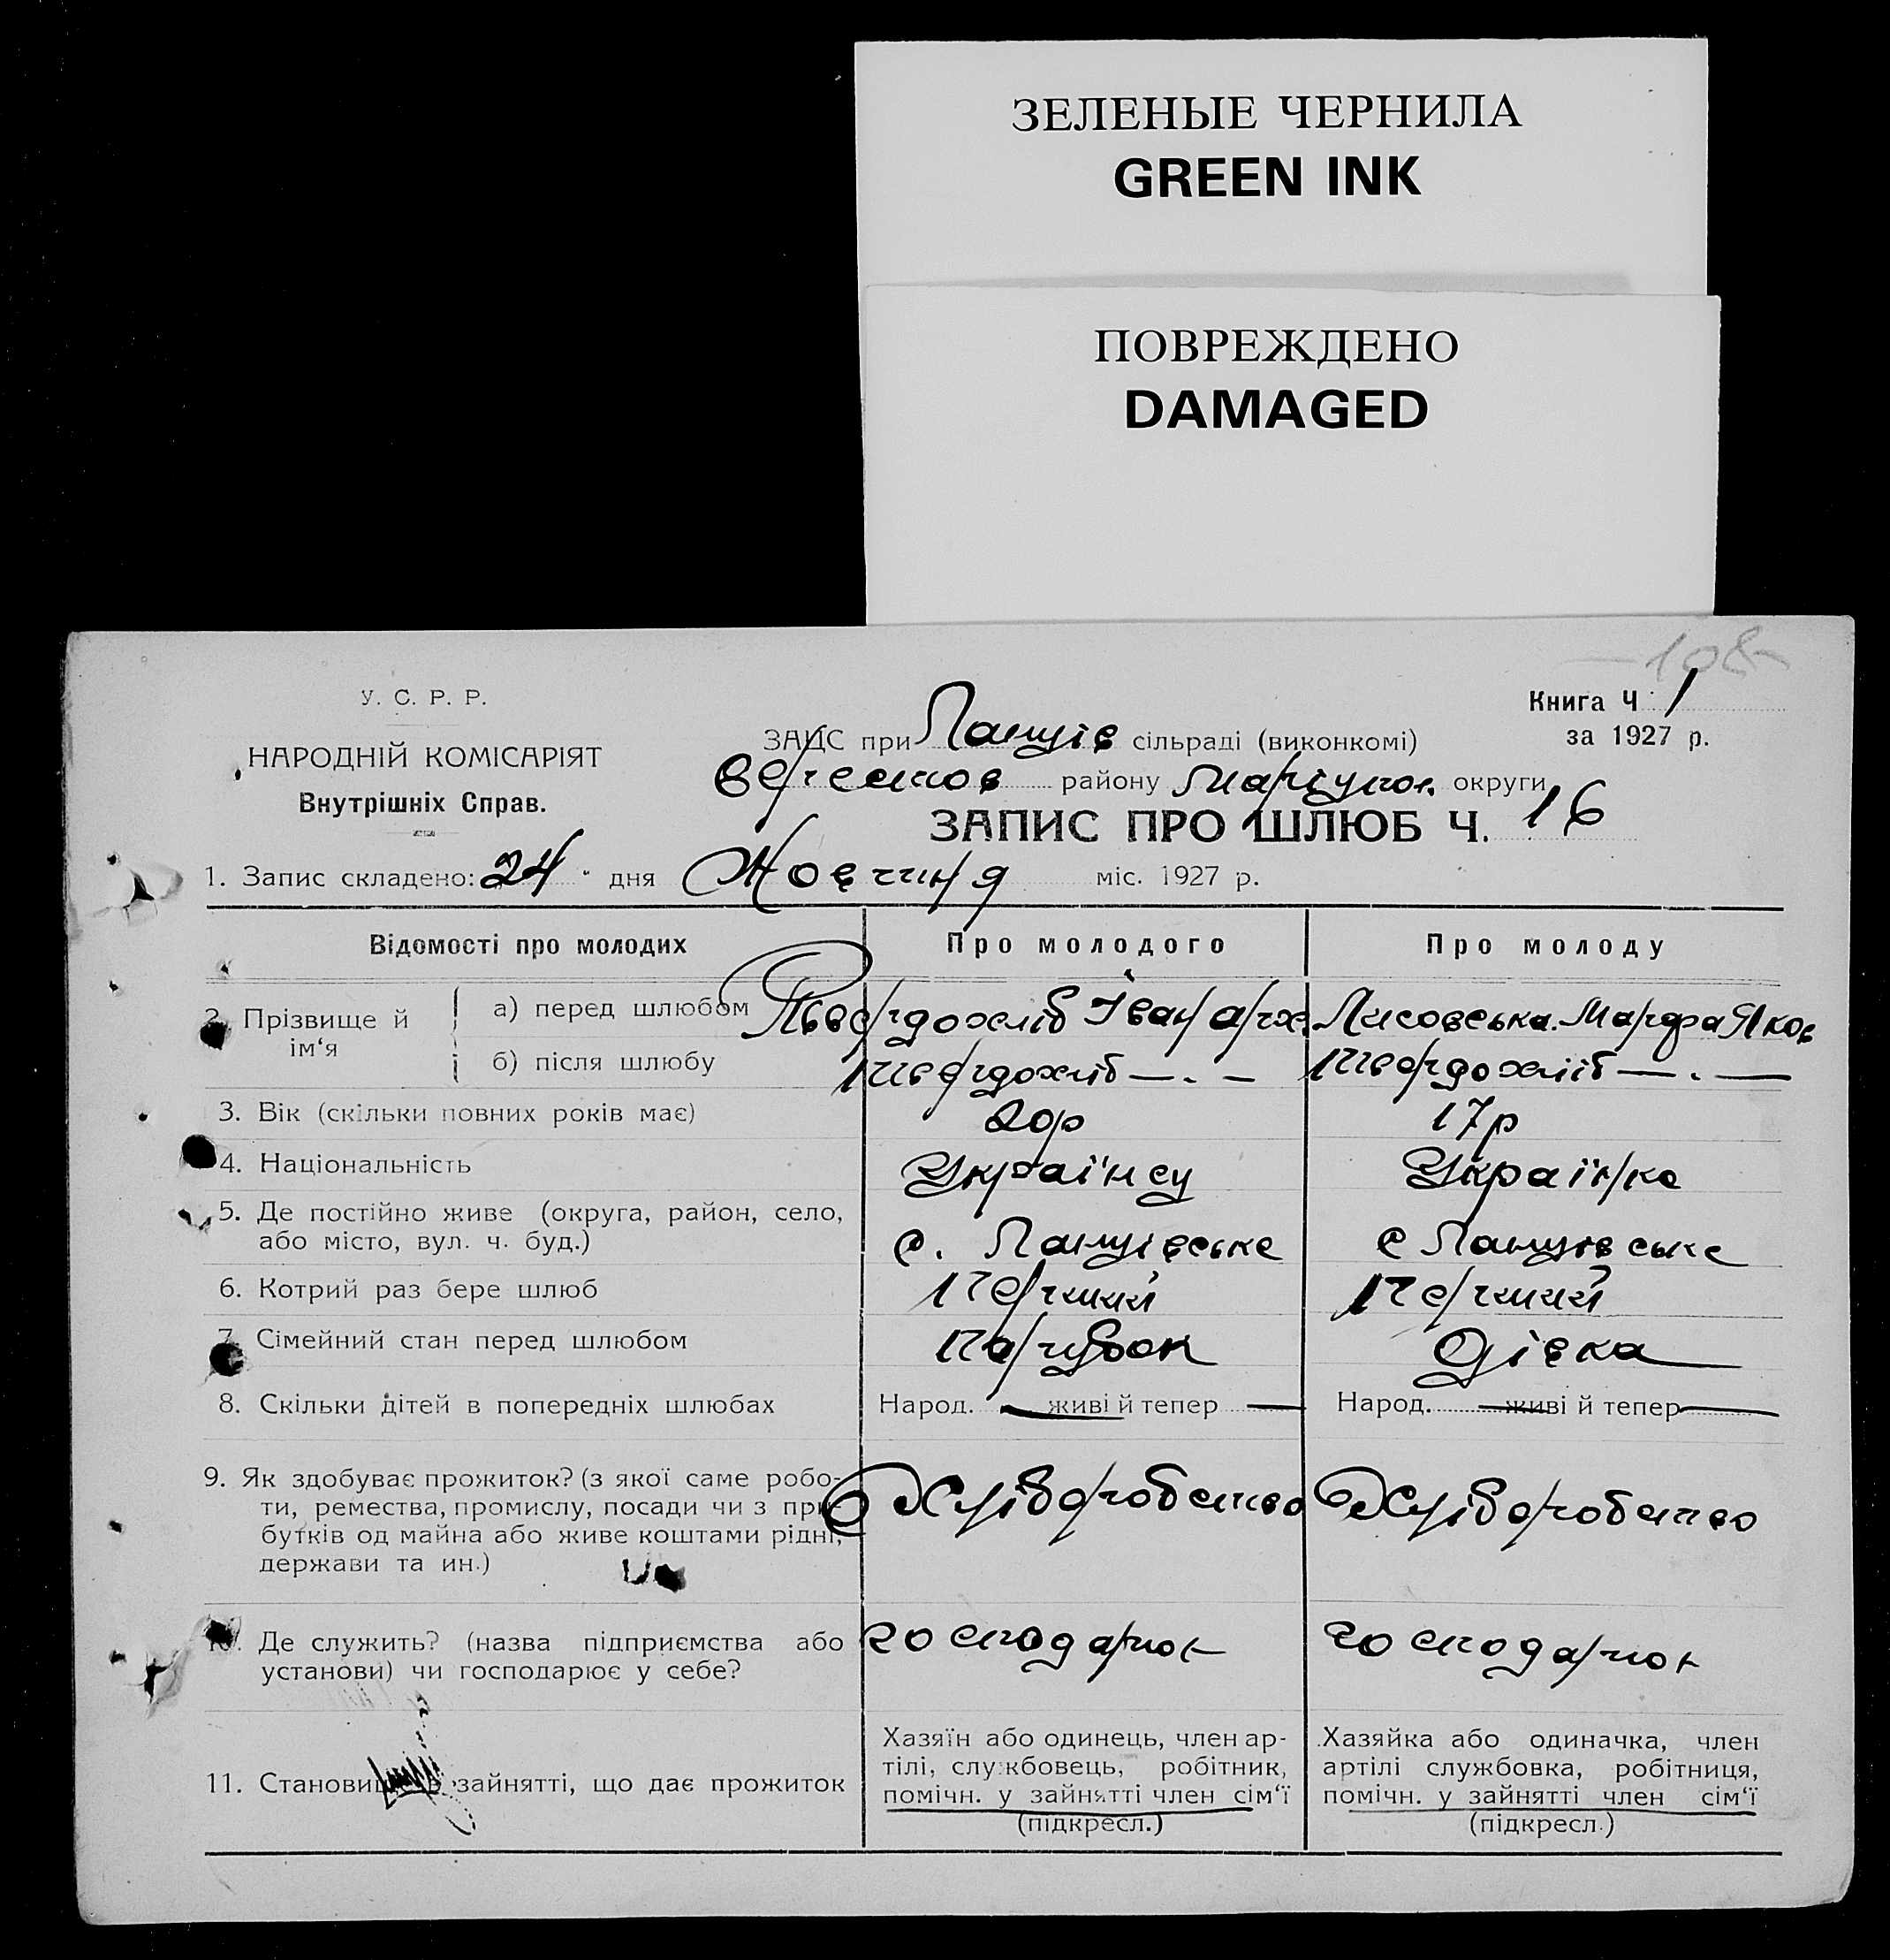 ЗЕЛЕНЫЕ ЧЕРНИЛА
GREEN INK
ПОВРЕЖДЕНО
DAMAGED
108
У. С. Р. Р.
НАРОДНІЙ КОМІСАРІЯТ
Внутрішніх Справ.
Книга Ч 1
за 1927 р.
ЗАЦС при Ланців сільраді (виконкомі)
району Маріупол. округи
ЗАПИС ПРО ШЛЮБ Ч. 16
1. Запис складено: 24 дня Жовтня міс. 1927 р.
Відомості про молодих
Про молодого
Про молоду
2. Прізвище й ім‘я
а) перед шлюбом
Твердохліб Іван Арх.
Лисовська Марфа Яков
б) після шлюбу
Твердохліб — . —
Твердохліб — . —
3. Вік (скільки повних років має)
20р
17р
4. Національність
Українец
Українка
5. Де постійно живе (округа, район, село,
або місто, вул. ч. буд.)
с. Ланцівське
с Ланцівське
6. Котрий раз бере шлюб
Перший
Перший
7. Сімейний стан перед шлюбом
Парубок
Дівка
8. Скільки дітей в попередніх шлюбах
Народ. — живі й тепер —
Народ. — живі й тепер —
9. Як здобуває прожиток? (з якої саме робо-
ти, ремества, промислу, посади чи з при-
бутків од майна або живе коштами рідні,
держави та ин.)
Хліборобство
Хліборобство
10. Де служить? (назва підприємства або
установи) чи господарює у себе?
господарює
господарює
11. Становище в зайнятті, що дає прожиток
Хазяїн або одинець, член ар-
тілі, службовець, робітник,
помічн. у зайнятті член сім‘ї
(підкресл.)
Хазяйка або одиначка, член
артілі службовка, робітниця,
помічн. у зайнятті член сім‘ї
(підкресл.)